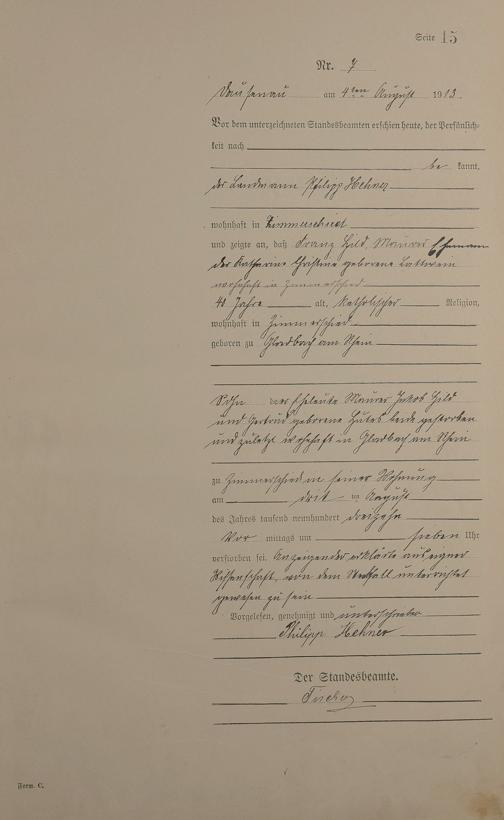 Seite 15
Nr. 7
Dausenau am 4ten August 1913.
Vor dem unterzeichneten Standesbeamten erschien heute, der Persönlich-
keit nach
be kannt,
der Landmann Philipp Hehner
wohnhaft in Zimmerschied
und zeigte an, daß Franz Hild, Maurer Ehemann
der Katharina Christine geborene
wohnhaft in Zimmerschied
40 Jahre alt, katholischer Religion,
wohnhaft in Zimmerschied
geboren zu Gladbach am Rhein
Sohn der Eheleute Maurer Jakob Hild
und Gertrud geborene beide gestorben
und zuletzt wohnhaft in Gladbach am Rhein
zu Zimmerschied in seiner Wohnung
am drit- en August
des Jahres tausend neunhundert dreizehn
Vor mittags um sieben Uhr
verstorben sei. Anzeigender erklärte aus eigner
Wissenschaft von dem Sterbfall unterrichtet
gewesen zu sein
Vorgelesen, genehmigt und unterschrieben
Philipp Hehner
Der Standesbeamte.
Form. C.